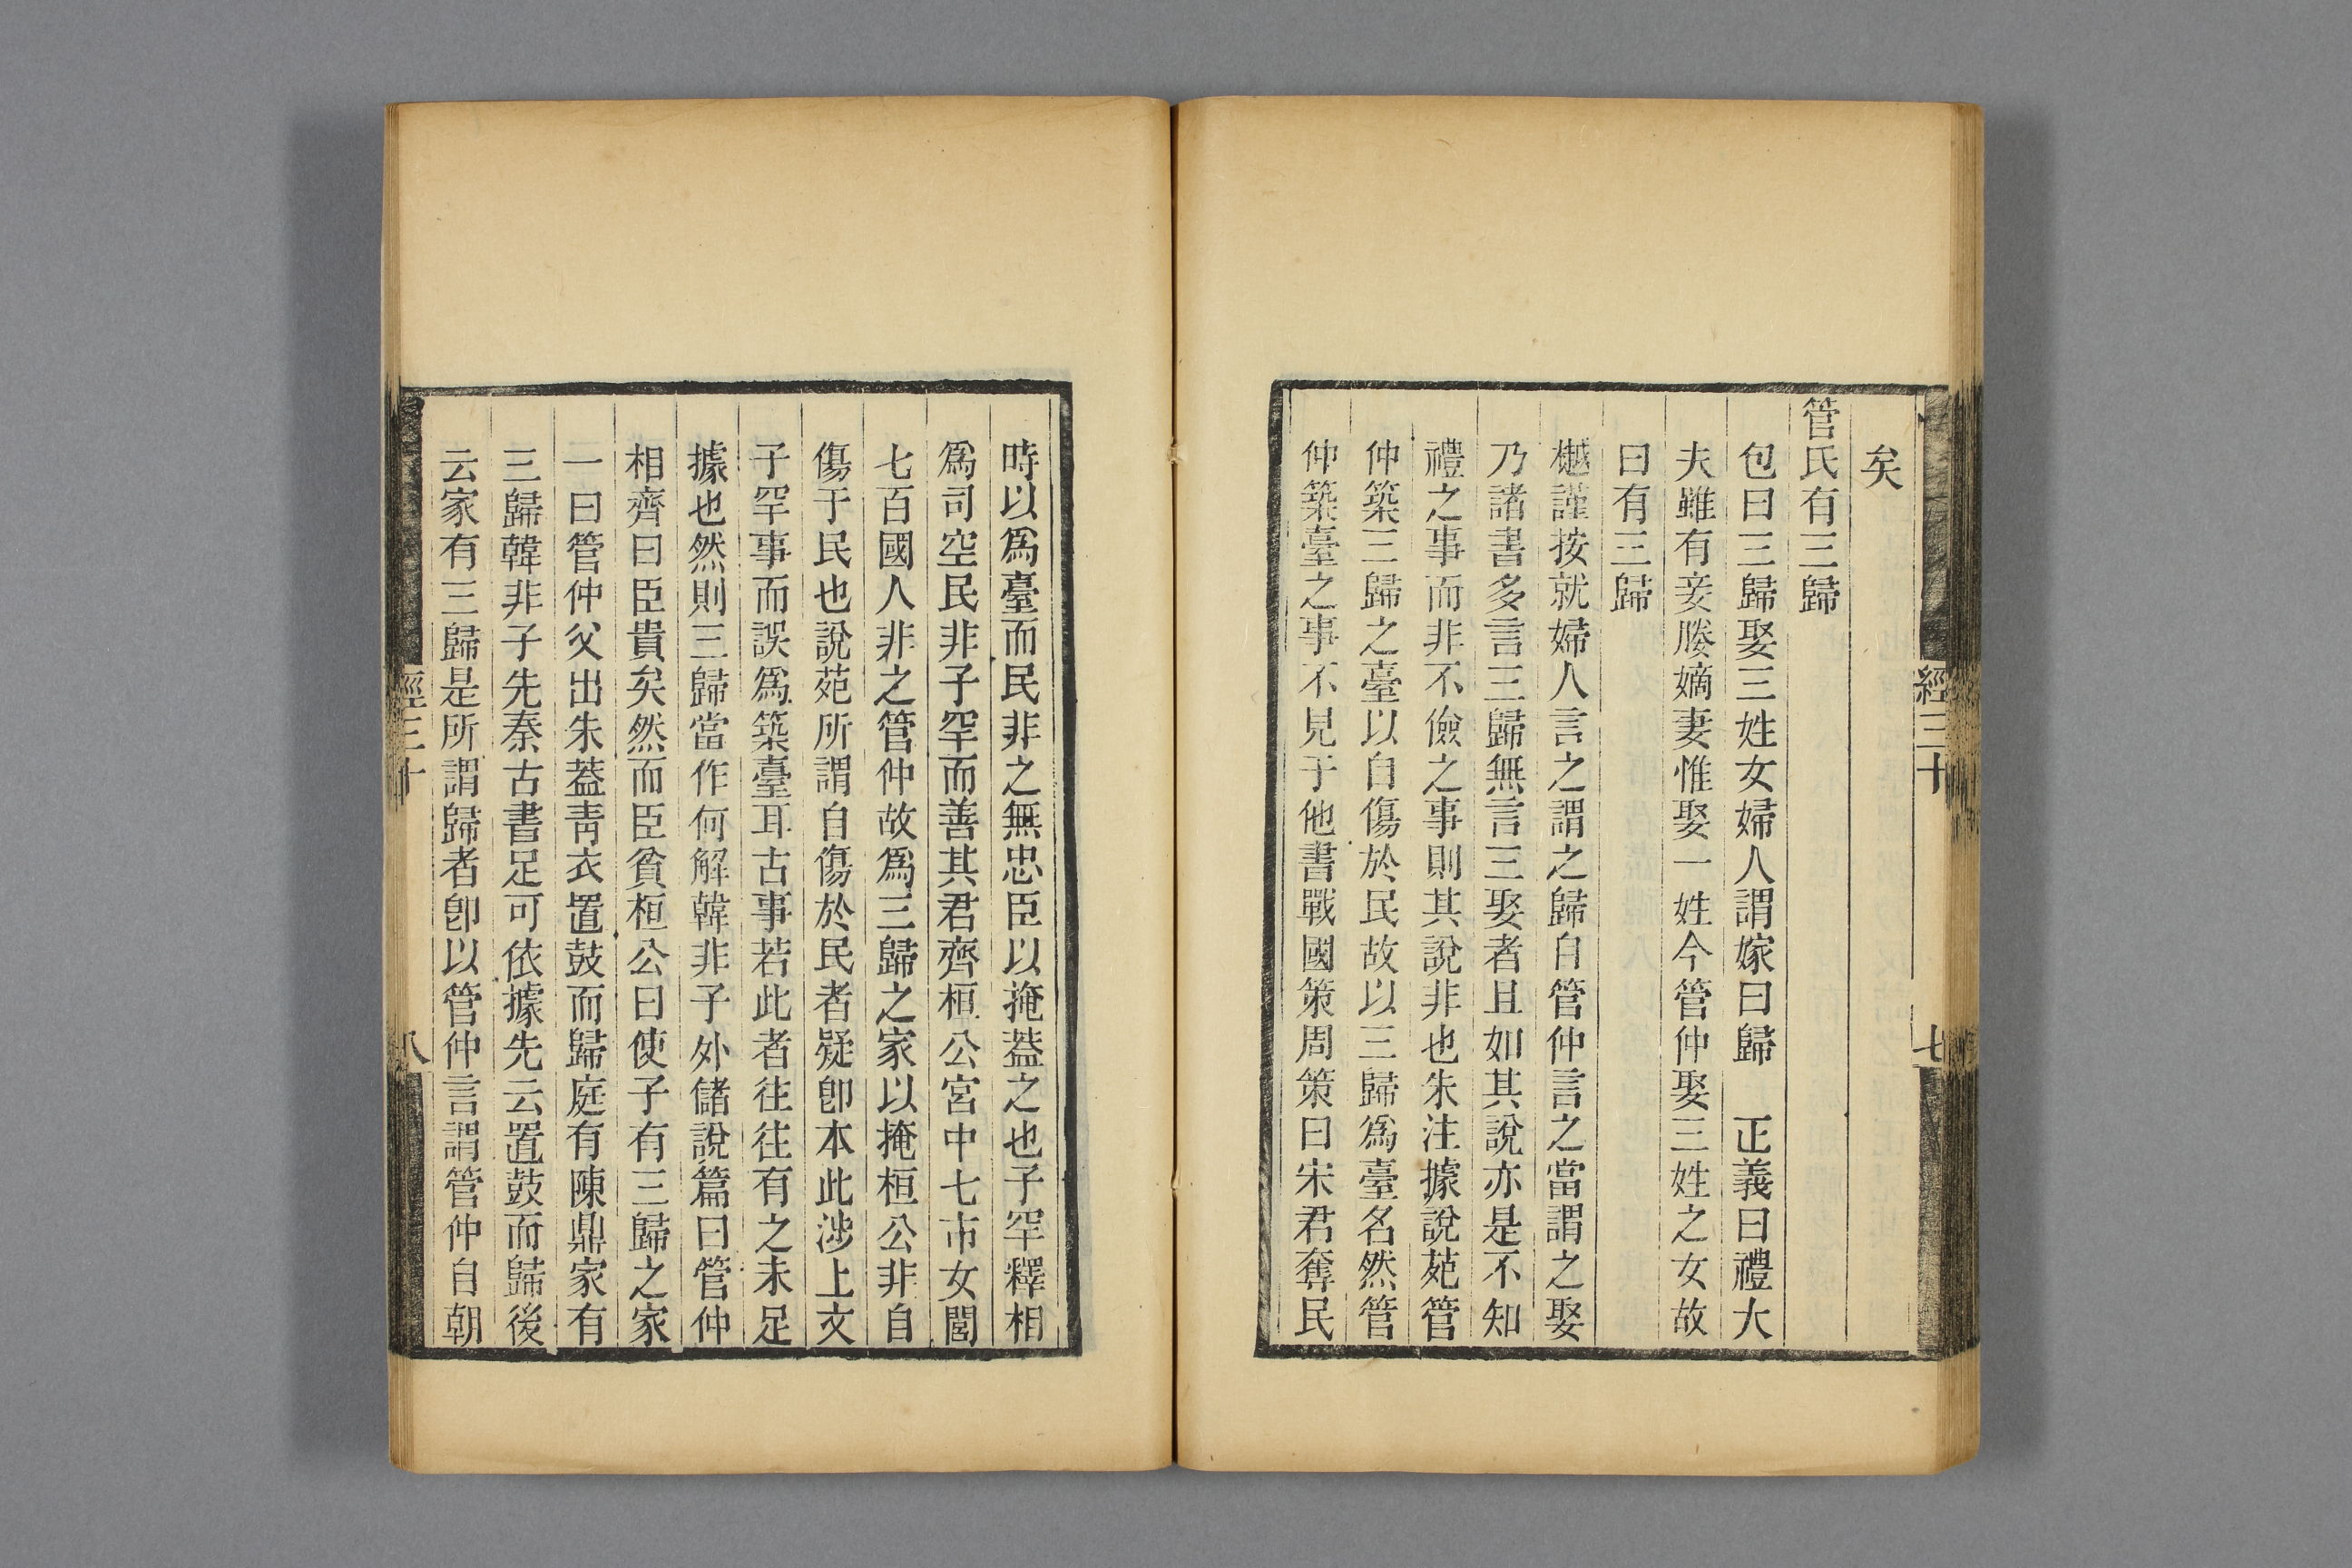 矣
管氏有三歸
包曰三歸娶三姓女婦人謂嫁曰歸　正義曰禮大
夫雖有妾媵嫡妻惟娶一姓今管仲娶三姓之女故
曰有三歸
樾謹按就婦人言之謂之歸自管仲言之當謂之娶
乃諸書多言三歸無言三娶者且如其說亦是不知
禮之事而非不儉之事則其說非也朱注據說苑管
仲築三歸之臺以自傷於民故以三歸爲臺名然管
仲築臺之事不見于他書戰國策周策曰宋君奪民
經三十
七
時以爲臺而民非之無忠臣以掩葢之也子罕釋相
爲司空民非子罕而善其君齊桓公宮中七市女閭
七百國人非之管仲故爲三歸之家以掩桓公非自
傷于民也說苑所謂自傷於民者疑卽本此涉上文
子罕事而誤爲築臺耳古事若此者往往有之未足
據也然則三歸當作何解韓非子外儲說篇曰管仲
相齊曰臣貴矣然而臣貧桓公曰使子有三歸之家
一曰管仲父出朱葢靑衣置鼓而歸庭有陳鼎家有
三歸韓非子先秦古書足可依據先云置鼓而歸後
云家有三歸是所謂歸者卽以管仲言謂管仲自朝
經三十
八